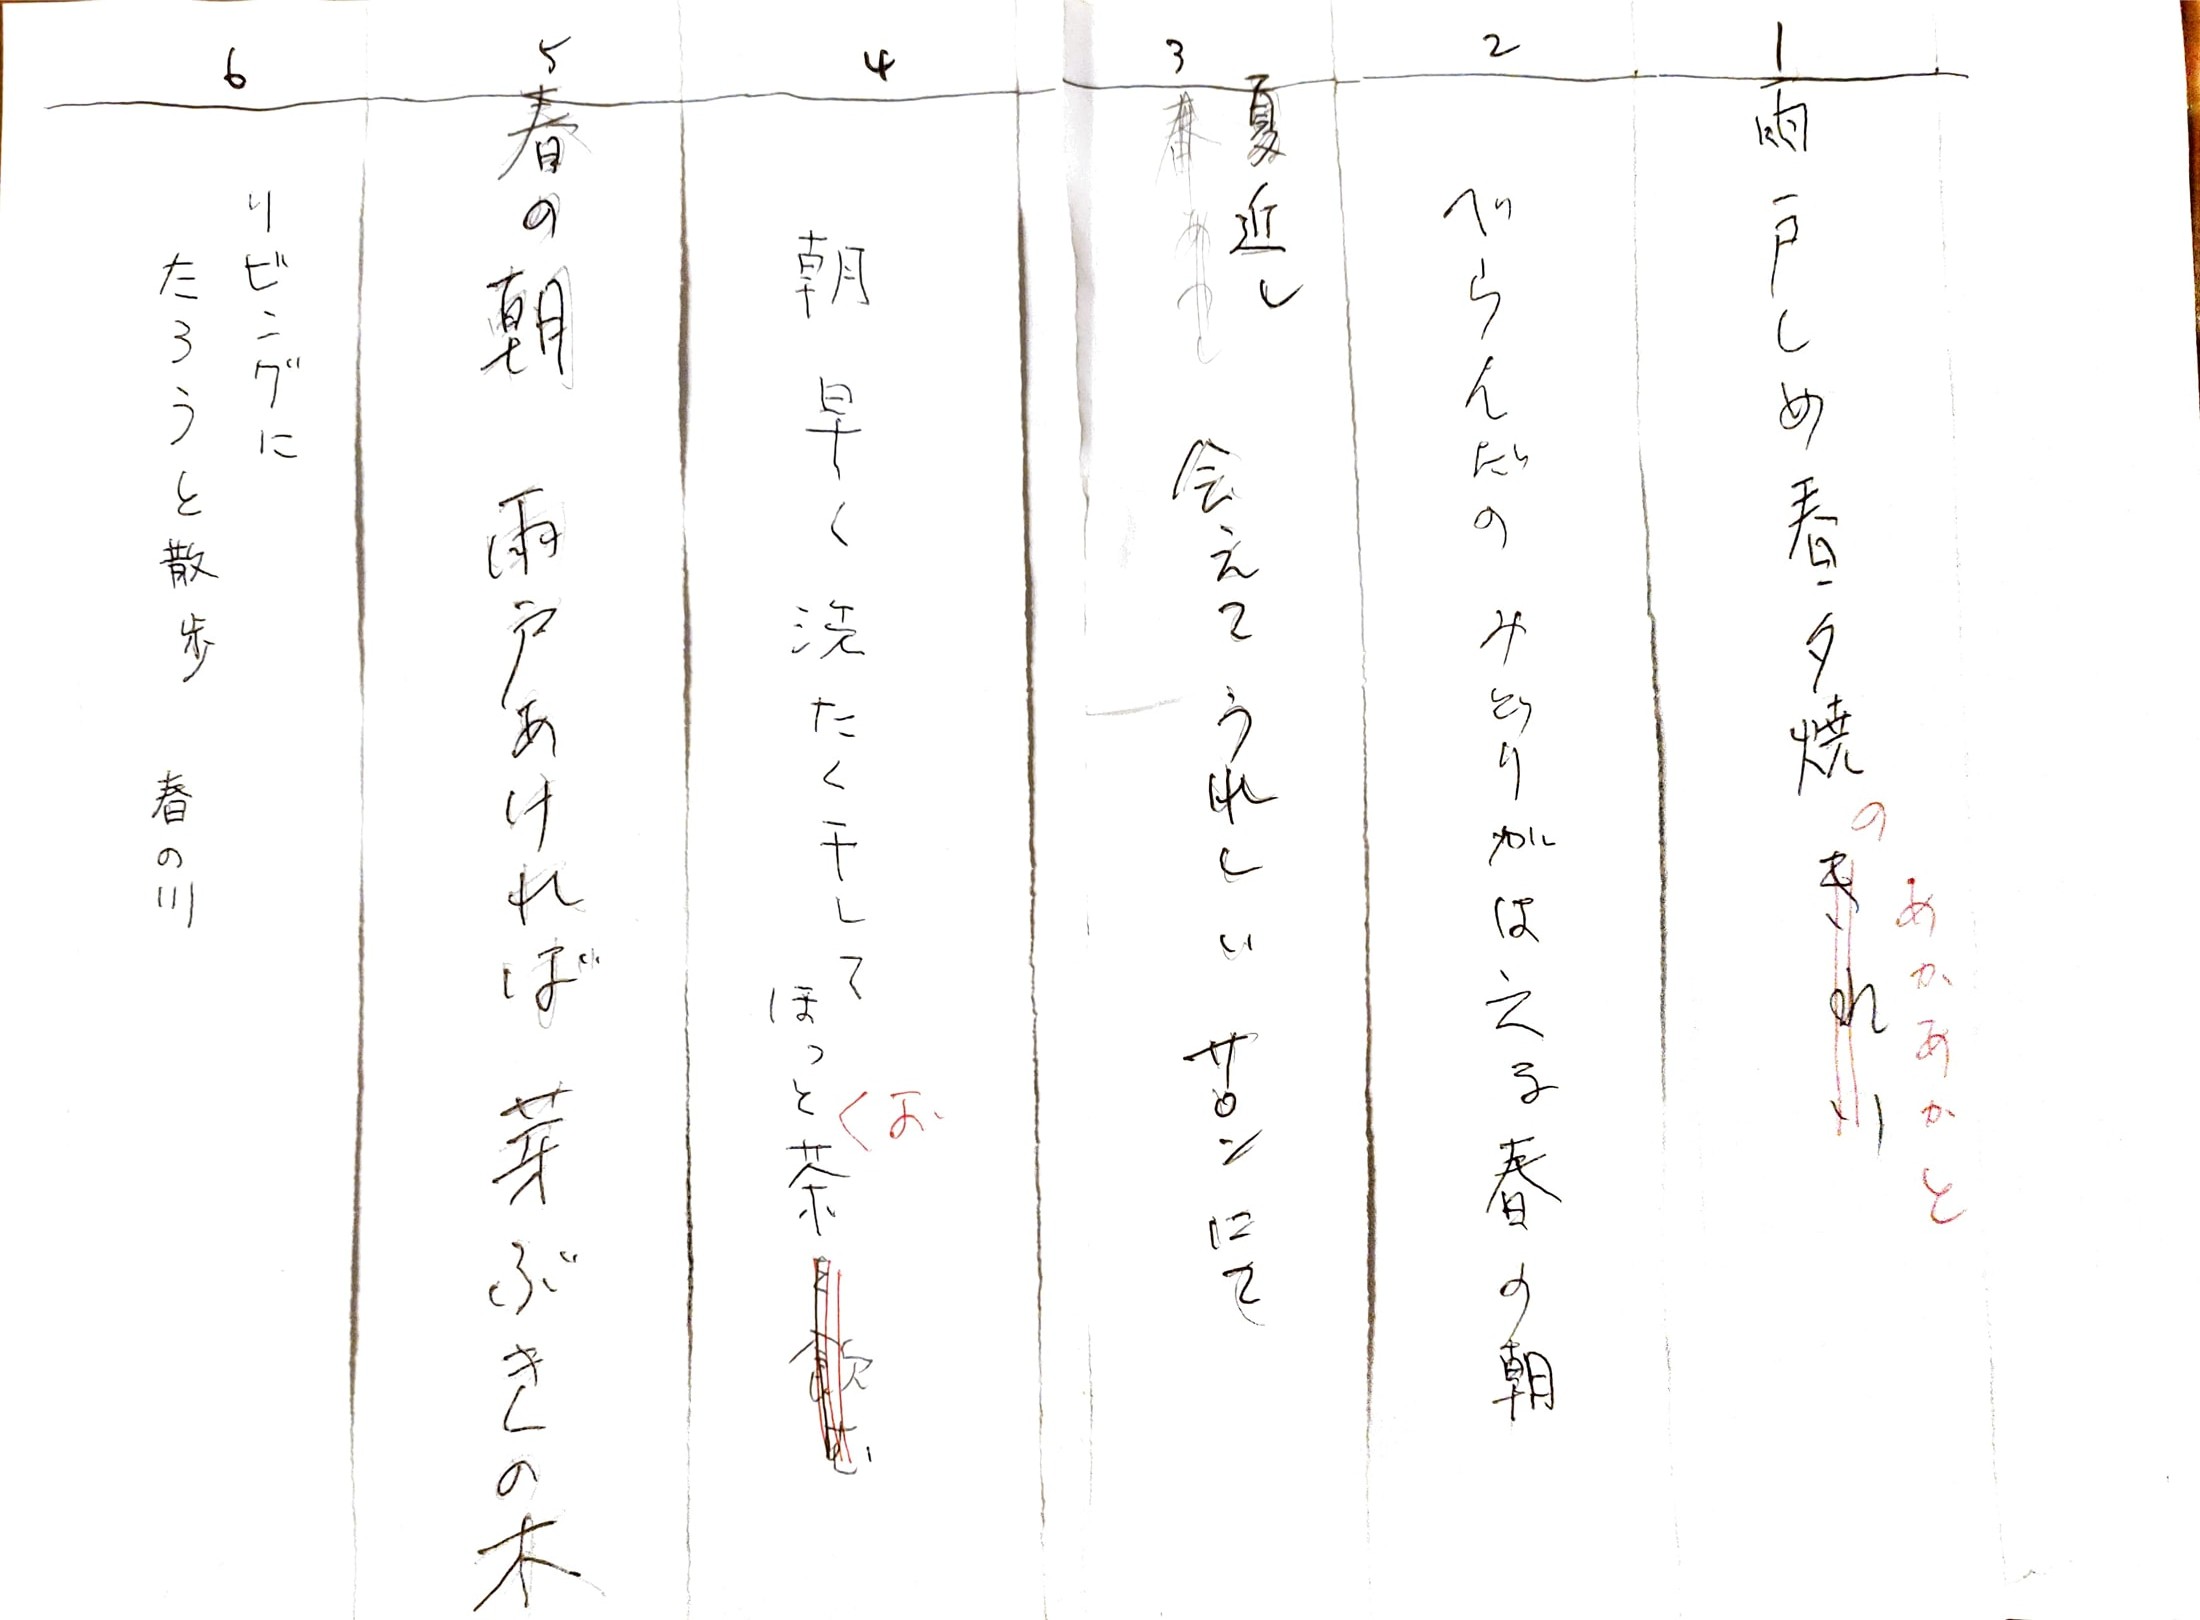 1
雨戸しめ春夕焼きれい
の
あかあかと
2
べらんだの みどりがはえる春の朝
3
夏近し 会えてうれしい サロンにて
4
朝早く 洗たく干して
ほっと茶飲む
おく
5
春の朝 雨戸あければ 芽ぶきの木
6
リビングに
たろうと散歩 春の川